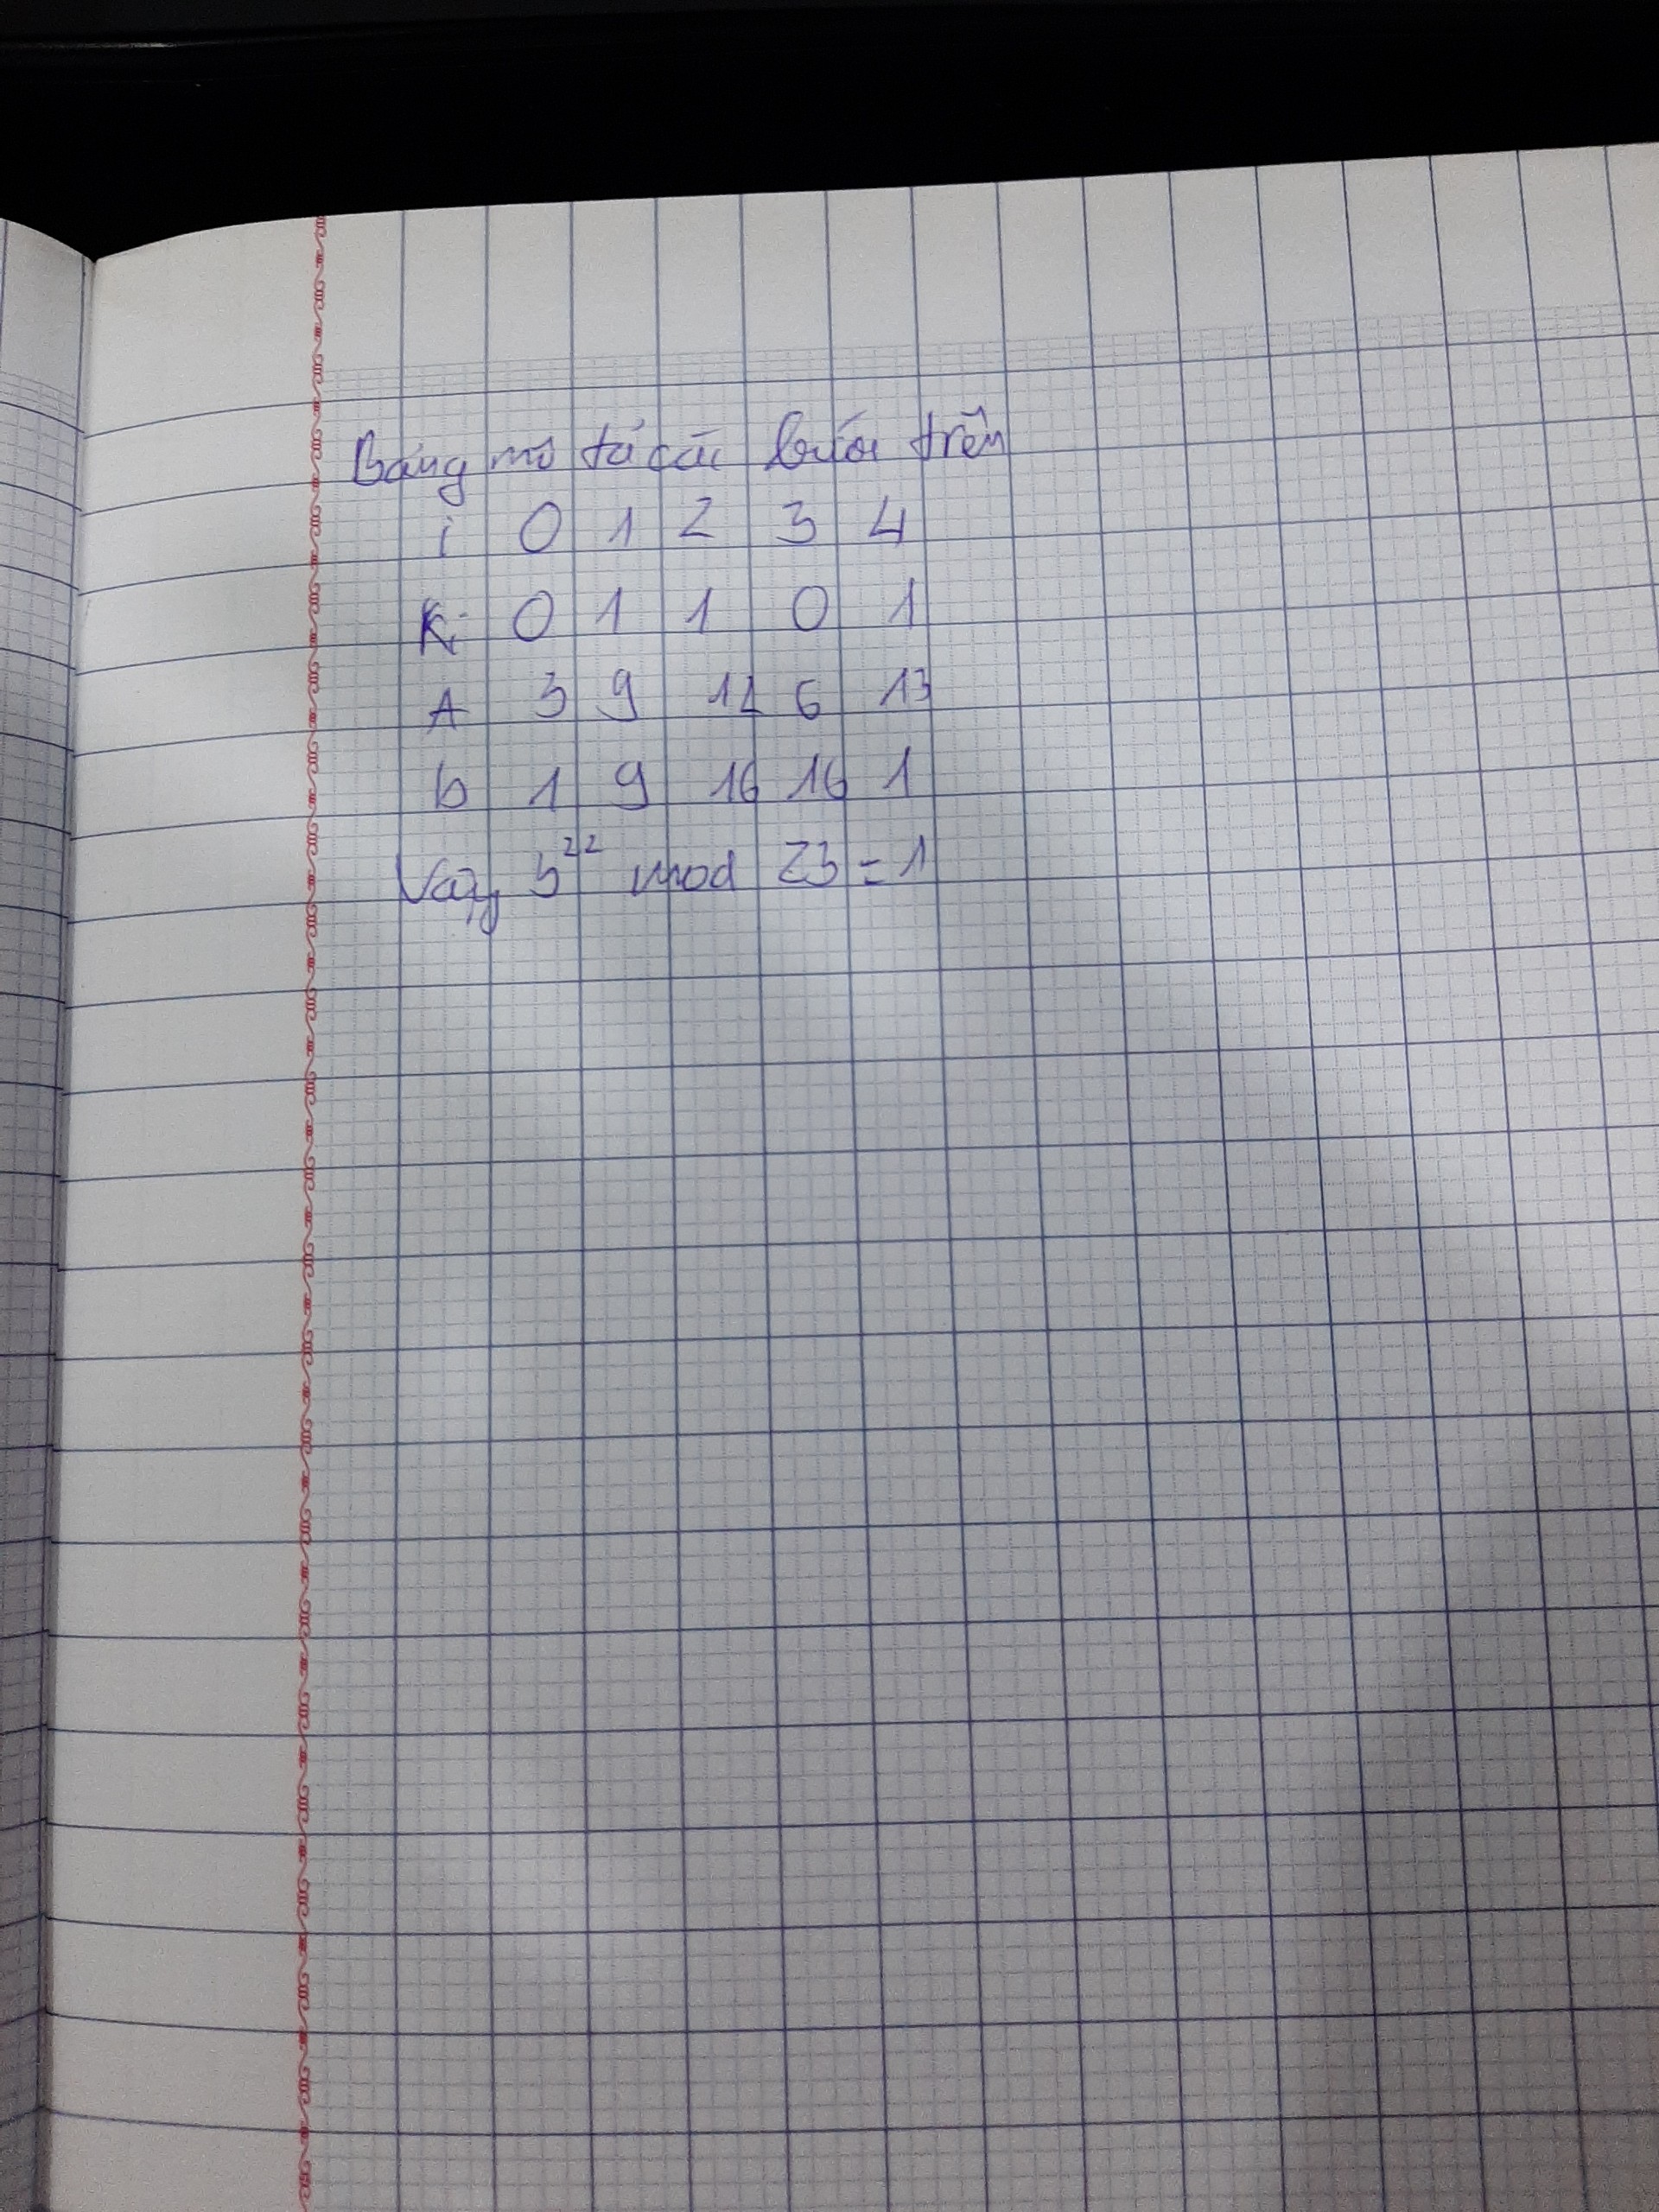 Bảng mô tả các bước trên
i 0 1 2 3 4
Ki 0 1 1 0 1
A 3 9 12 6 13
b 1 9 16 16 1
Vậy 3²² mod 23 = 1